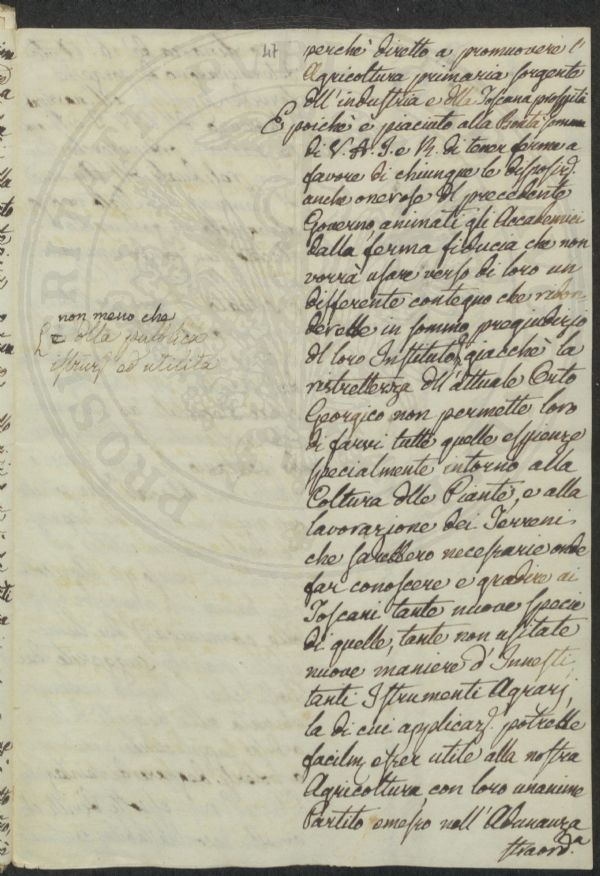 47
perchè diretto a promuovere l'
Agricoltura primaria sorgente
dll'industria e dlla Toscana prosperità
E poichè è piaciuto alla Bontà somma
di V. A. I. e R. di tener ferme a
favore di chiunque le disposiz.
anche onerose dl precedente
Governo, animati gli Accademici
dalla ferma fiducia che non
vorrà usare verso di loro un
differente contegno che ridon
derebbe in sommo pregiudizio
dl loro Instituto, giacchè la
ristrettezza dll'attuale Orto
Georgico non permette loro
di farvi tutte quelle espienze
specialmente intorno alla
Coltura dlle Piante, e alla
lavorazione dei Terreni
che sarebbero necessarie onde
far conoscere e gradire ai
Toscani tante nuove specie
di quelle, tante non usitate
nuove maniere d'Innesti,
tanti Istrumenti Agrarj,
la di cui applicaz. potrebbe
facilm. esser utile alla nostra
Agricoltura con loro unanime
Partito emesso nell'Adunanza
straord.a
non meno che
e dlla pubblica
istruz. ed utilità